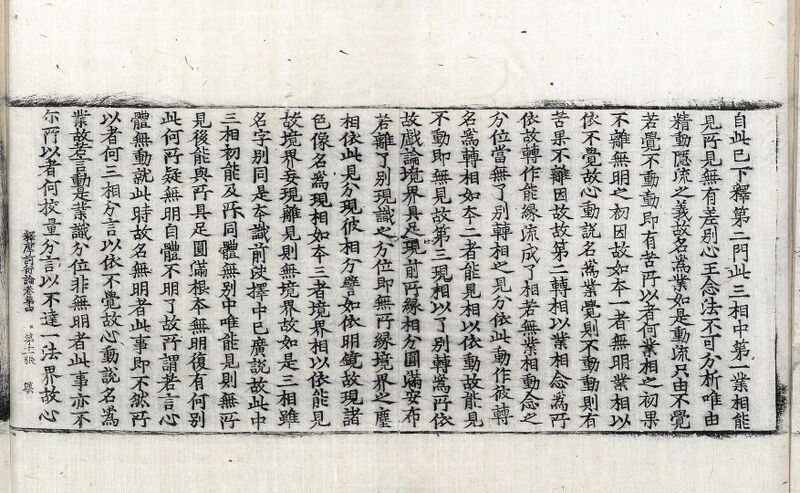 自此已下釋第二門此三相中第一業相能
見所見無有差別心王念法不可分析唯由
精動隱流之義故名為業如是動流只由不覺
若覺不動動即有苦所以者何業相之初果
不離無明之初因故如本一者無明業相以
依不覺故心動說名為業覺則不動動則有
苦果不離因故故第二轉相以業相念為所
依故轉作能緣流成了相若無業相動念之
分位當無了別轉相之見分依此動作彼轉
名為轉相如本二者能見相以依動故能見
不動即無見故第三現相以了別轉為所依
故戲論境界具足現前所緣相分圓滿安布
若離了別現識之分位即無所緣境界之塵
相依此見分現彼相分譬如依明鏡故現諸
色像名為現相如本三者境界相以依能見
故境界妄現離見則無境界故如是三相雖
名字別同是本識前決擇中已廣說故此中
三相初能及所同體無別中唯能見則無所
見後能與所具足圓滿根本無明復有何別
此何所疑無明自體不明了故所謂者言心
體無動就此時故名無明者此事即不然所
以者何三相分言以依不覺故心動說名為
業故若言動是業識分位非無明者此事亦不
尒所以者何挍量分言以不達一法界故心
釋摩訶衍論卷第四 第十二張